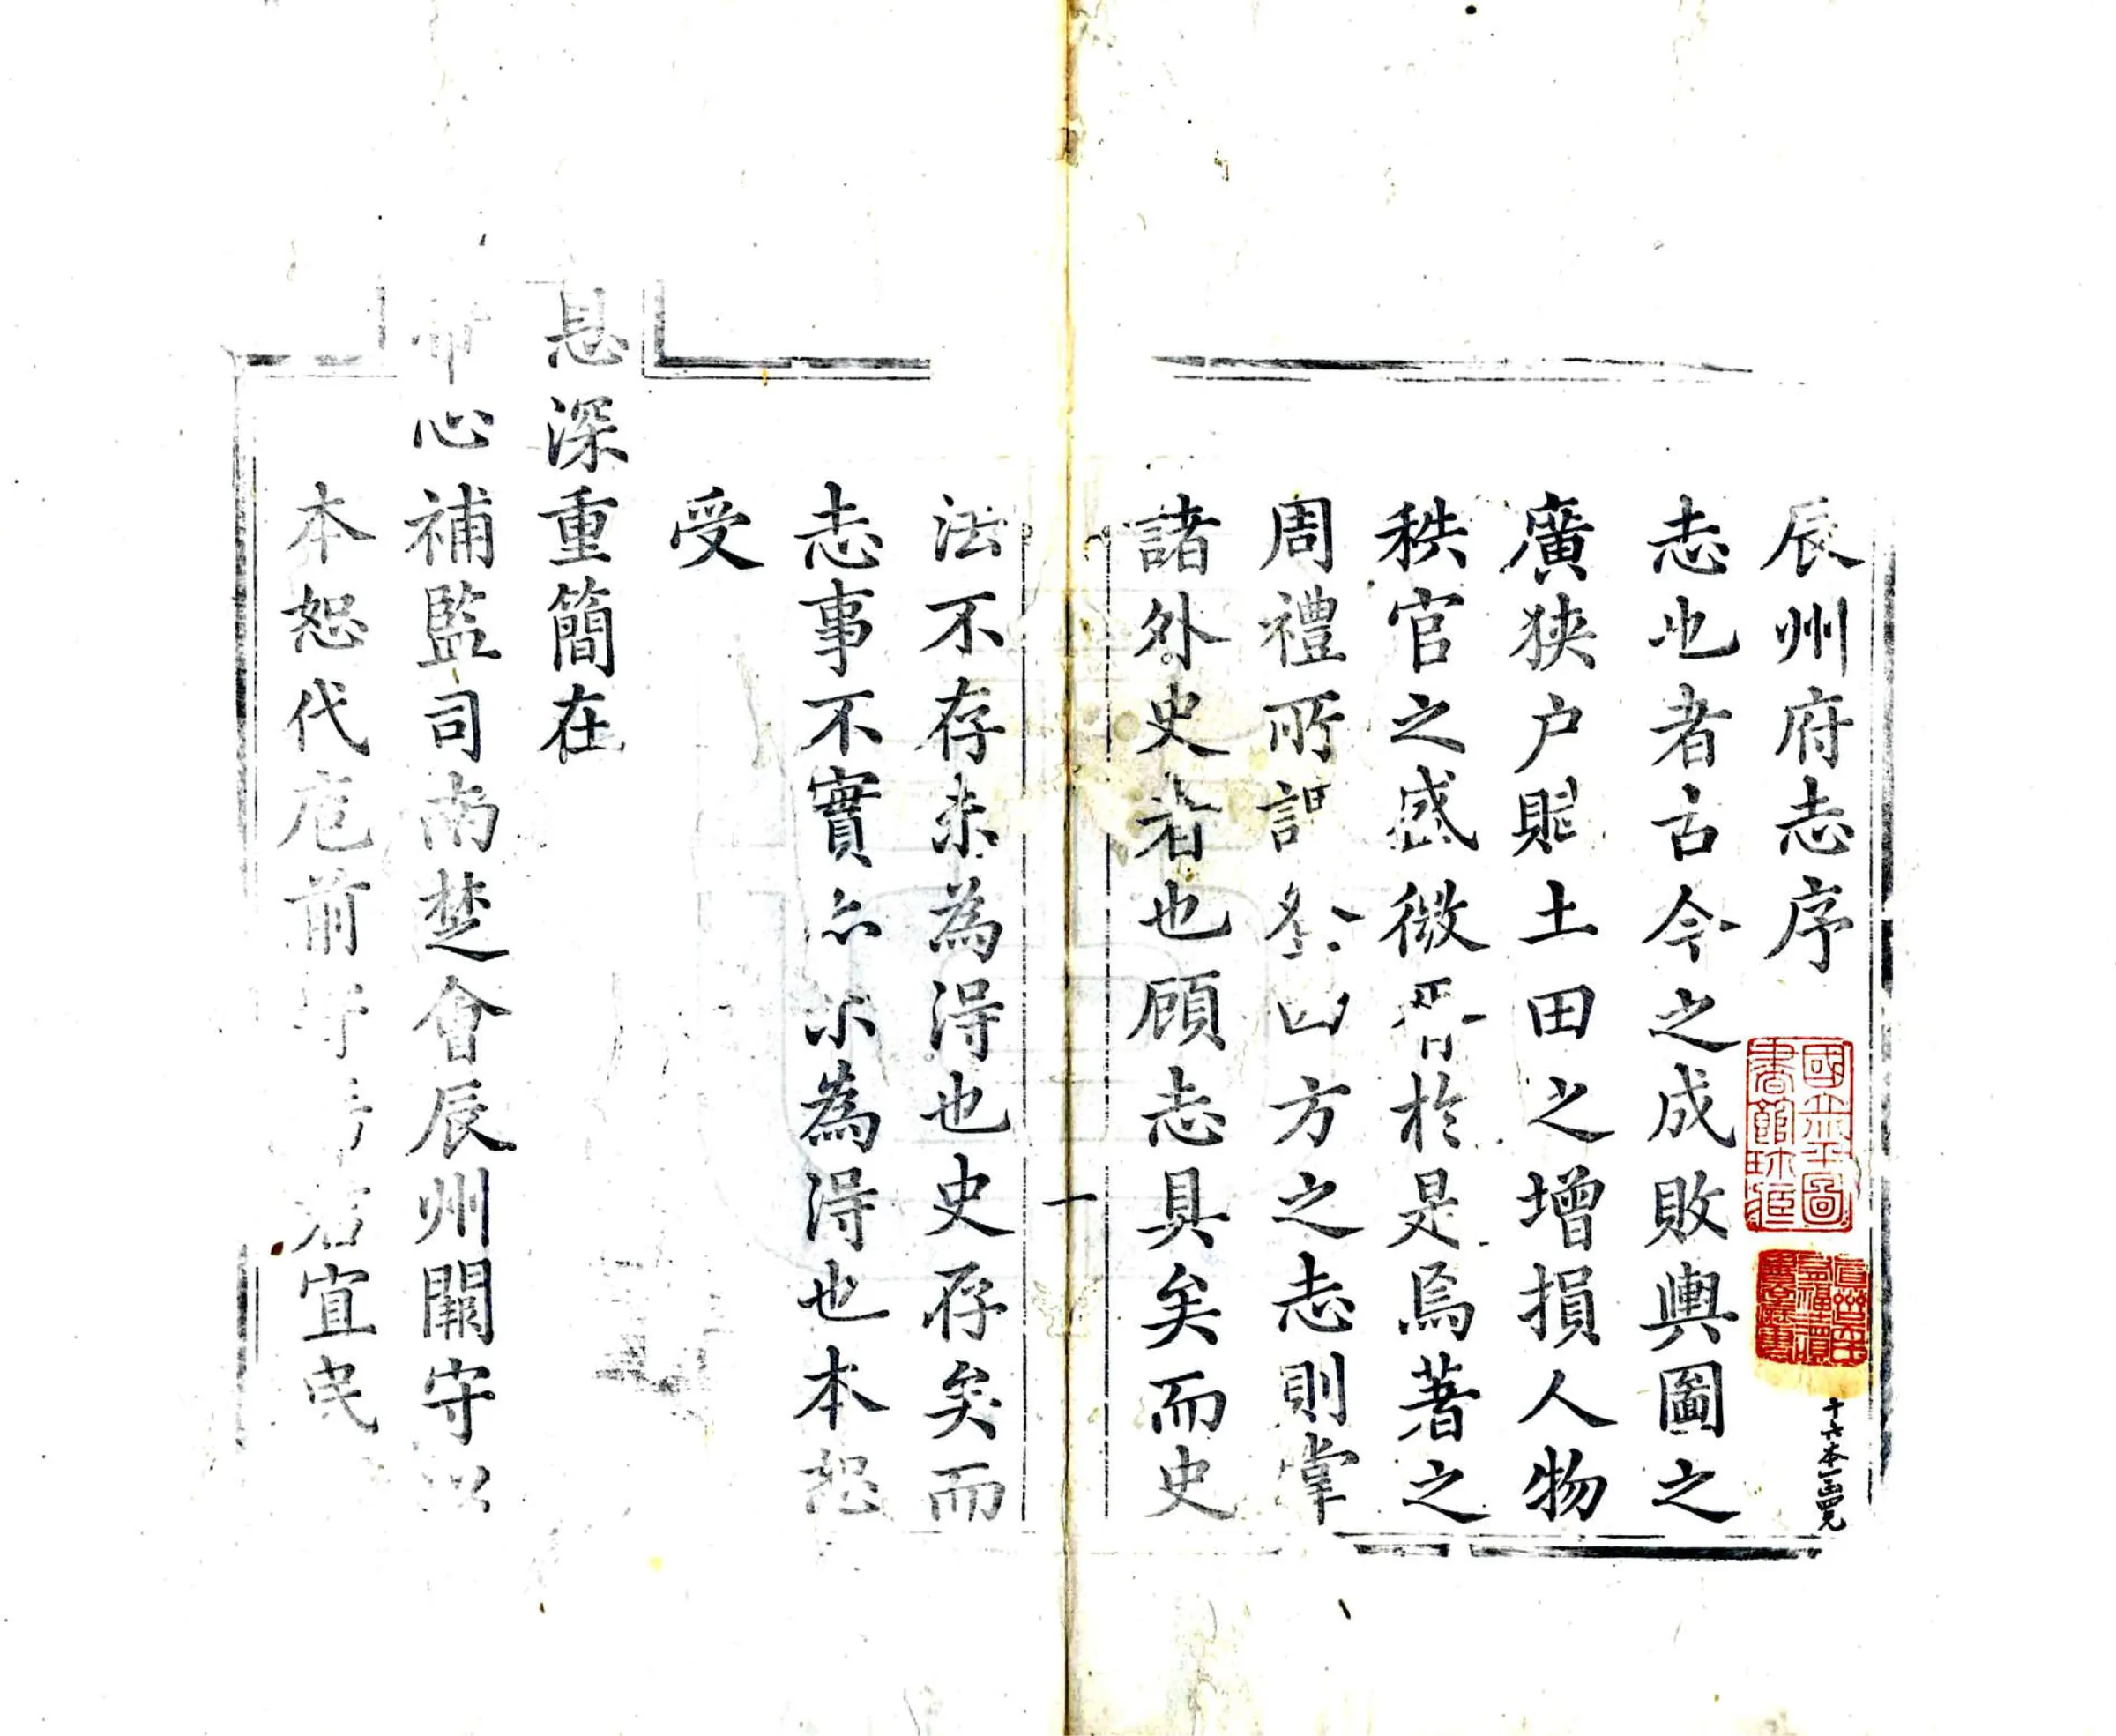 辰州府志序
志也者古今之成敗輿圖之
廣狹户賦土田之增損人物
秩官之盛微胥於是焉著之
周禮所謂冬山方之志則掌
諸外史者也顧志具矣而史
一
法不存未為淂也史存矣而
志事不實亦不為淂也本恕
受
恩深重簡在
帝心補監司南楚會辰州闕守以
本恕代庖前守 君宜民
國立北平圖書館珍藏
十六本一函四兄